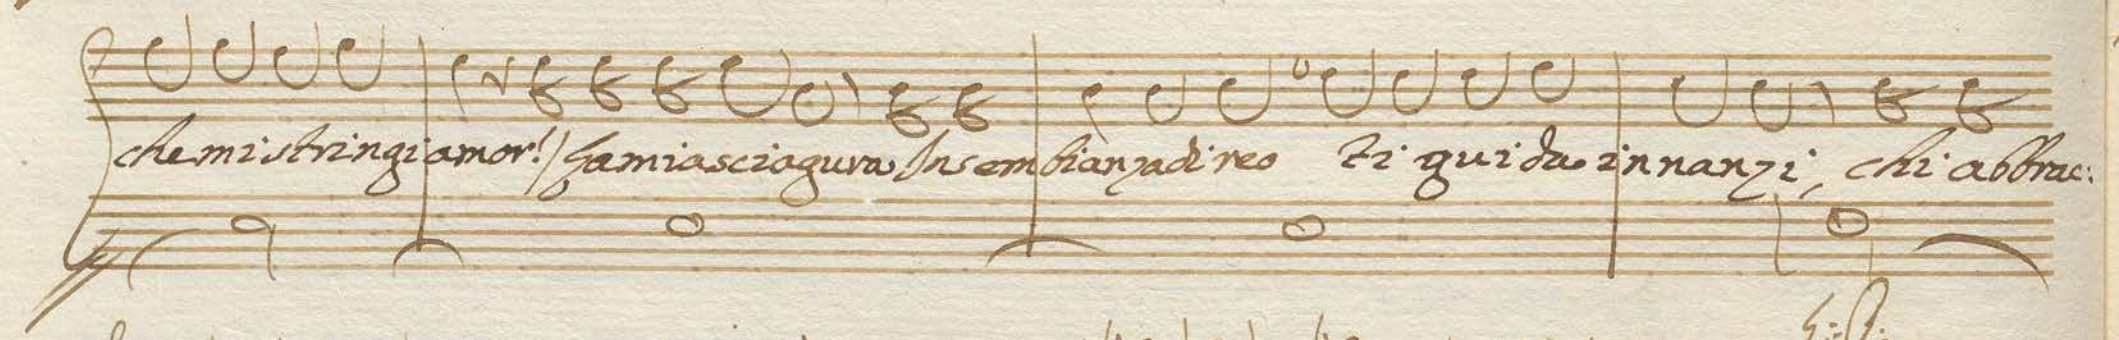 che mi stringi amor!) La mia sciagura In sembianza di reo ti guida innanzi, chi abbrac: